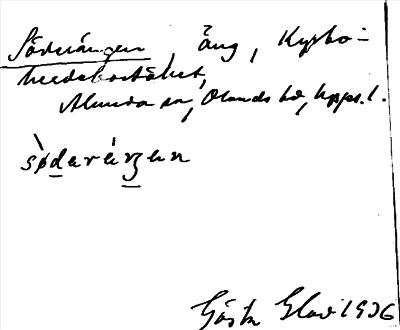 Söderängen, äng, Kyrko-
heedsbostället,
Alunda sn, Olands hd, Upps. l.
södaräŋen
Gösta Glad 1936